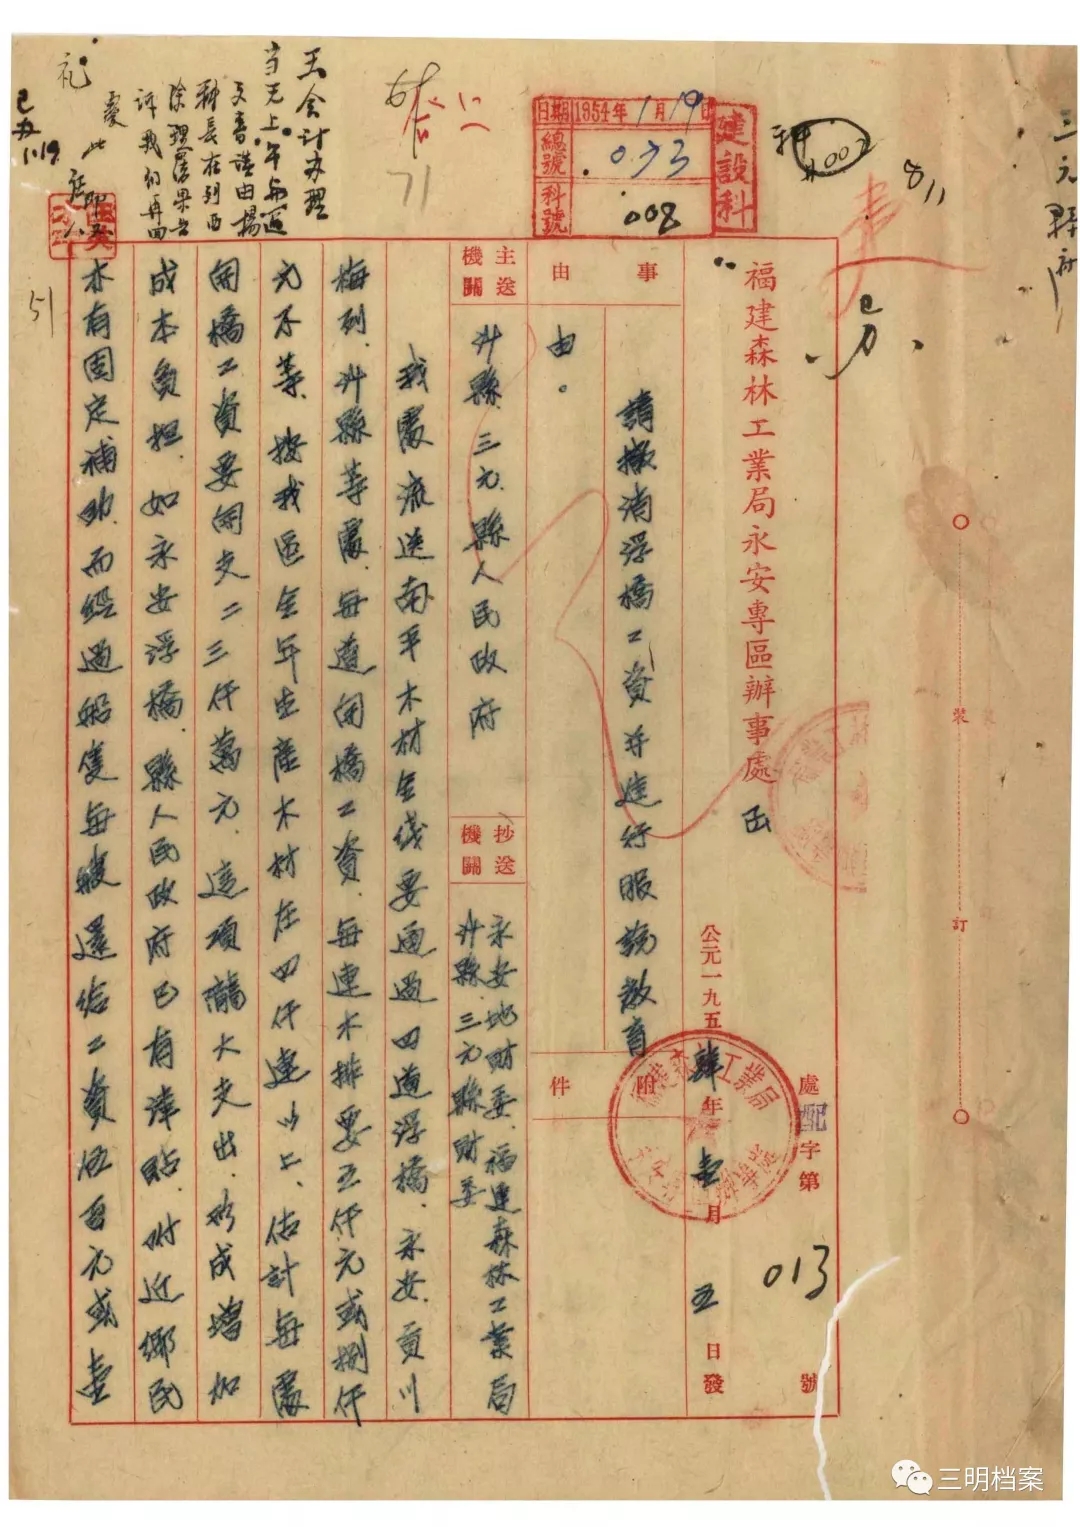 三元縣府
811
科
002
建設科
日期 1954年1月19日
總號 033
科號 008
福建森林工業局永安專區辦事處 函
處 字第 013 號
公元一九五肆年壹月五日發
事由
請撤消浮橋工資并進行服說教育
由。
附件
主送機關
沙縣.三元.縣人民政府
抄送機關
永安地財委.福建森林工業局
沙縣.三元縣財委
我處流送南平木材全线要通過四道浮橋.永安.貢川
梅列.沙縣等處.每道開橋工資.每連木排要五仟元或捌仟
元不等.按我區全年生產木材在四仟連以上.估計每處
開橋工資要開支二三仟萬元.這項龐大支出.形成增加
成本負担.如永安浮橋.縣人民政府已有津貼.附近鄉民
亦有固定補助.而經過船隻每艘還給工資伍百元或壹
王会计办理
71
已办 1.19
51
裝
訂
三明档案